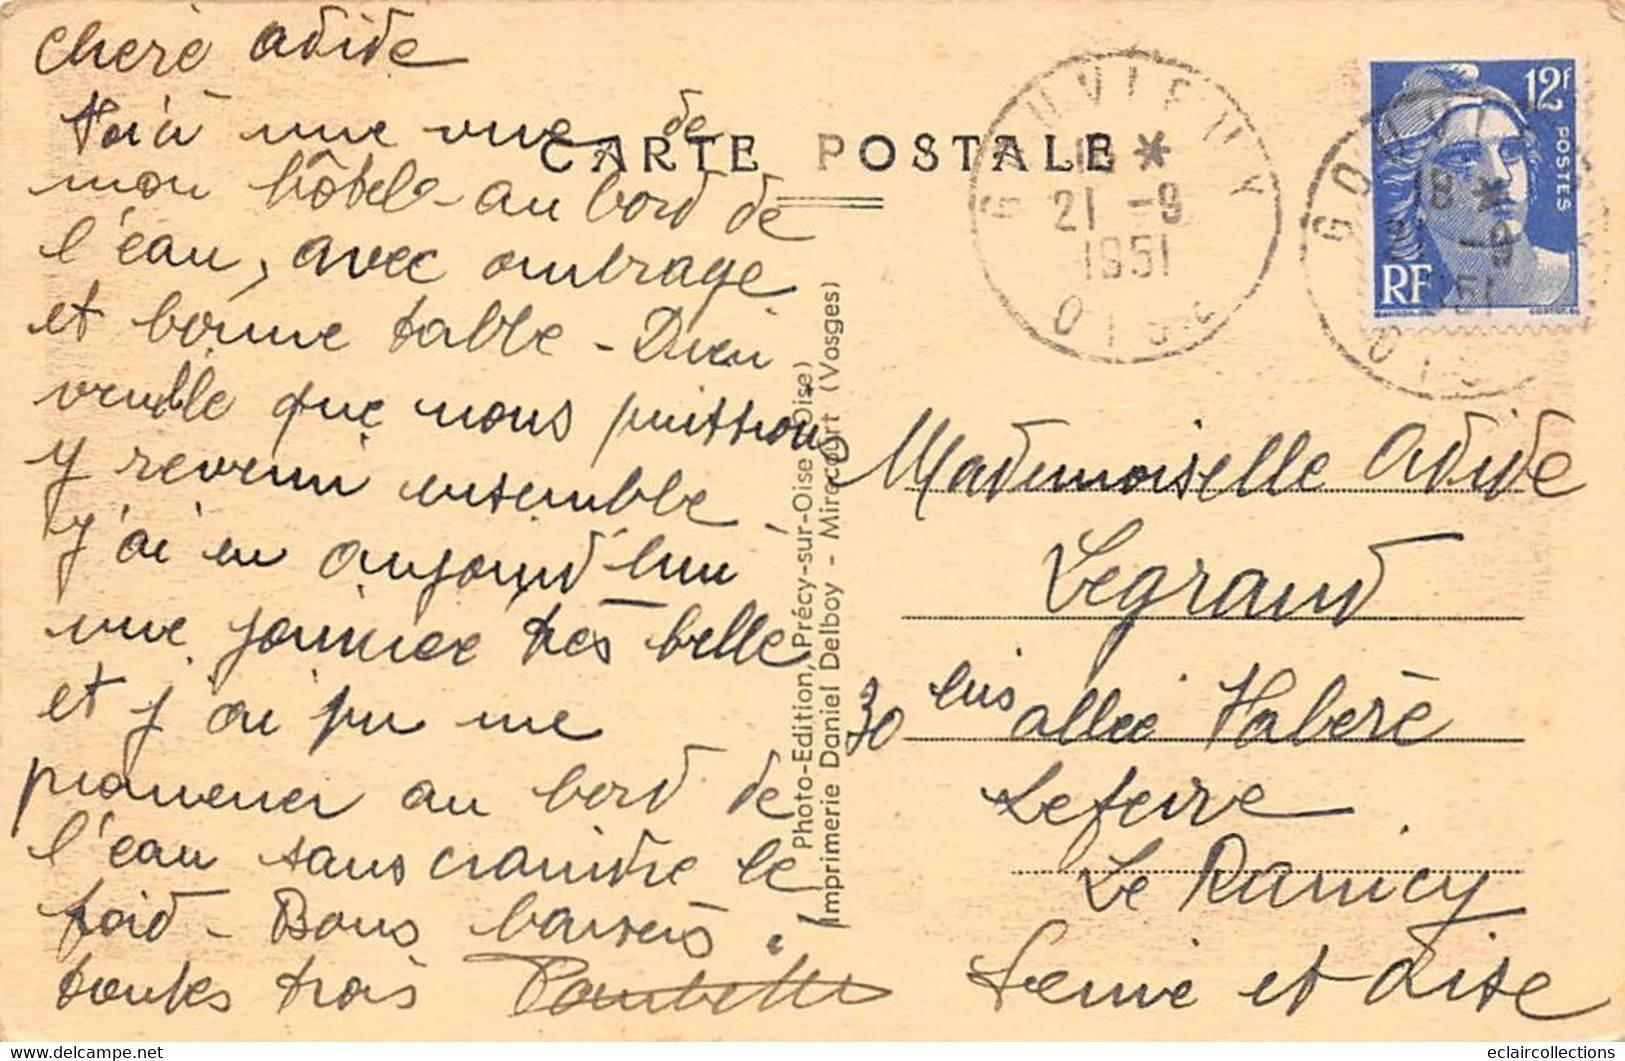 Chère Odide
Voià une vue de
mon hôtel - au bord de
l'eau, avec ombrage
et bonne table - Dieu
veuille que nous puissions
y revenir ensemble -
J'ai eu aujourd'hui
une journée très belle
et j'ai pu me
promener au bord de
l'eau sans craindre le
froid - Bons baisers à
toutes trois
CARTE POSTALE
Photo-Edition, Précy-sur-Oise (Oise)
Imprimerie Daniel Delboy - Mirecourt (Vosges)
GOUVIEUX
18 *
21 -9
1951
OISE
12F
POSTES
RF
GOUVI
18 *
-9
51
OIS
Mademoiselle Odide
Legrand
30 bis allée
Lefevre
Le Raincy
Seine et Oise
eclaircollections